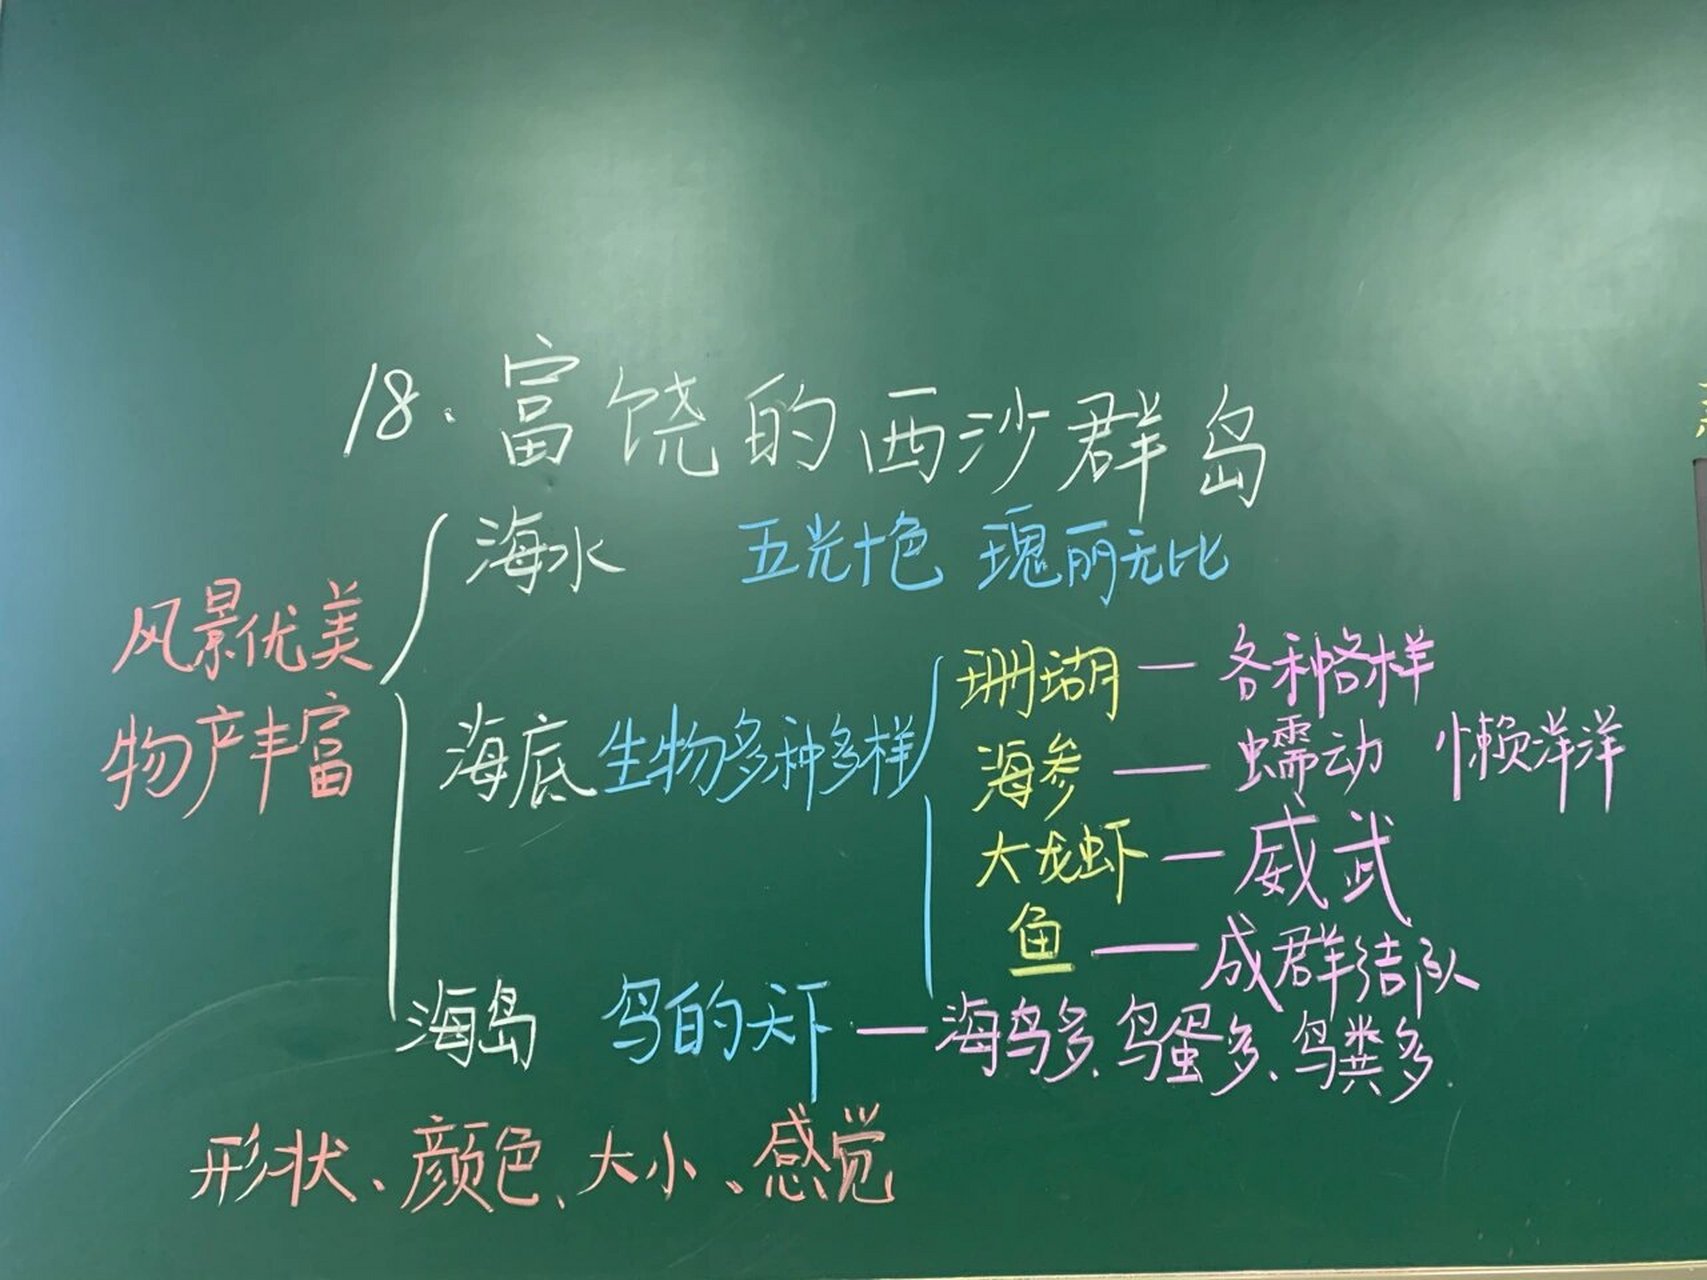 18.富饶的西沙群岛
海水 五光十色 瑰丽无比
风景优美
物产丰富
海底 生物多种多样
珊瑚—各种各样
海参—蠕动 懒洋洋
大龙虾—威武
鱼—成群结队
海岛 鸟的天下—海鸟多、鸟蛋多、鸟粪多.
形状、颜色、大小、感觉